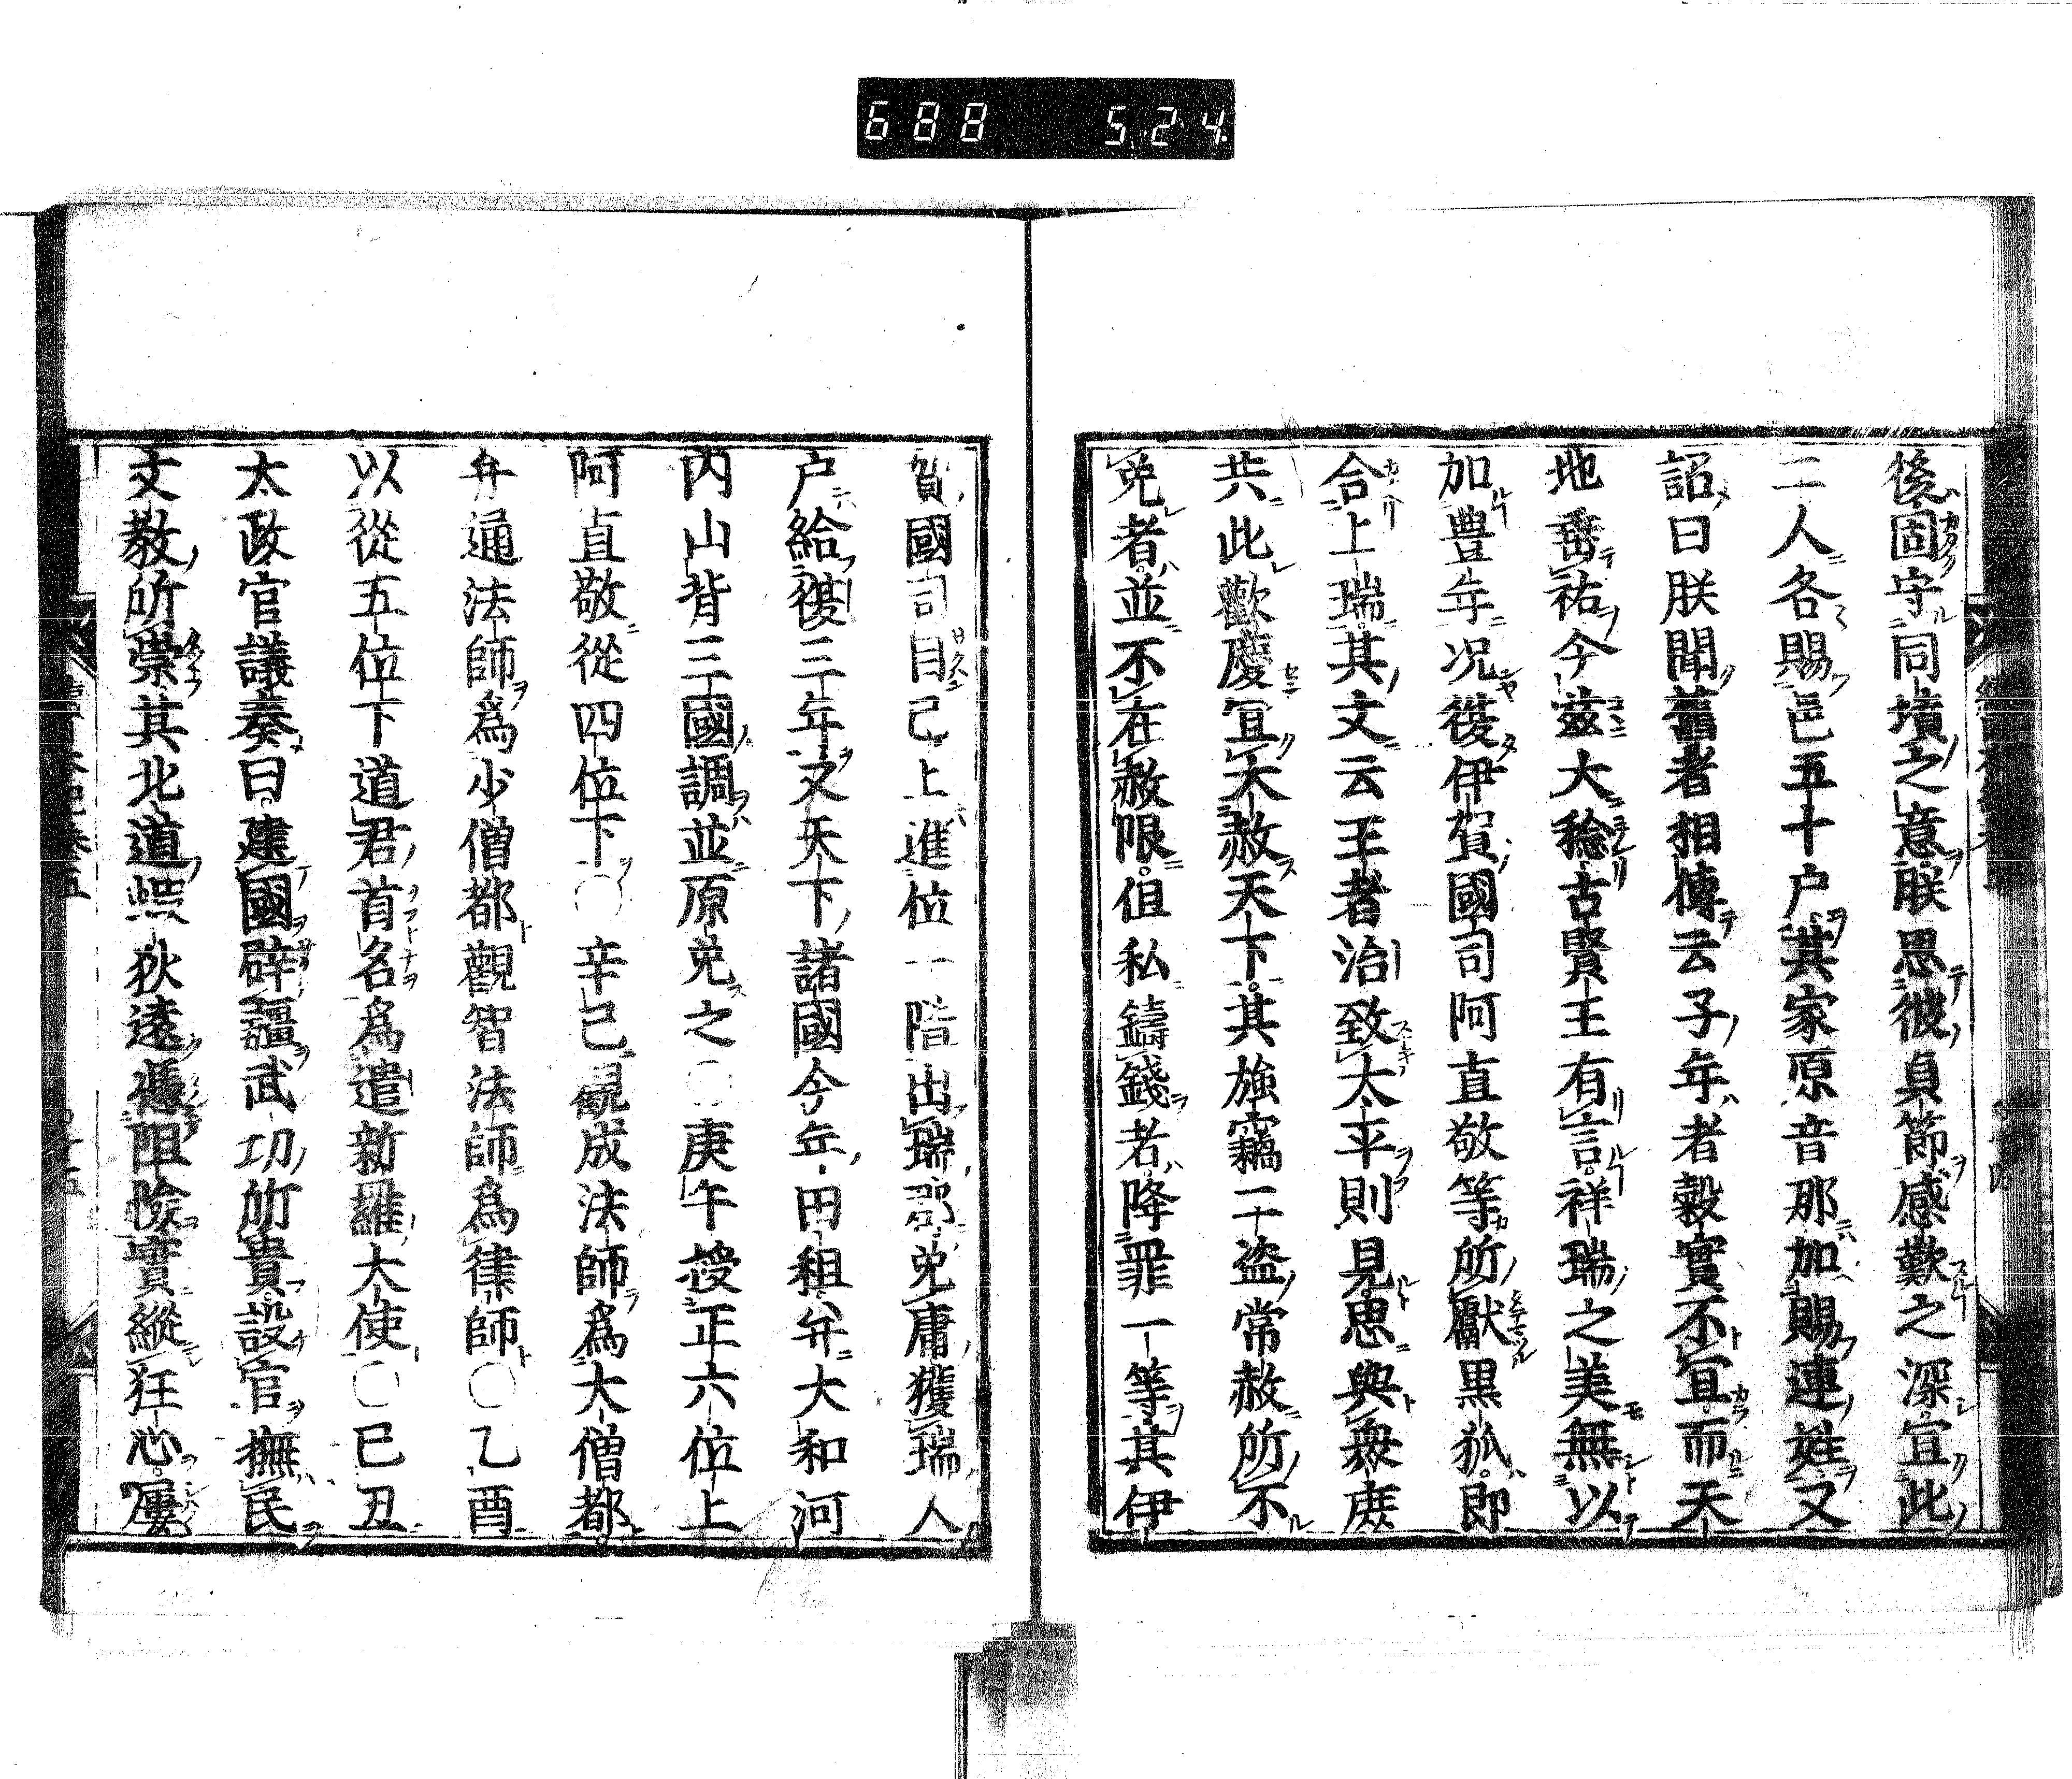 688 524
後固守同墳之意朕思彼貞節感歎之深宜此
二人各賜邑五十户其家原音那加賜連姓又
詔曰朕聞舊者相傳云子年者穀實不宜而天
地垂祐今茲大稔古賢王有言祥瑞之美無以
加豊年况復伊賀國司阿直敬等所獻黒狐即
合上瑞其文云王者治致太平則見思與衆庶
共此歡慶宜大赦天下其強竊二盗常赦所不
免者並不在赦限但私鑄錢者降罪一等其伊
賀國司目已上進位一階出瑞郡免庸獲瑞人
户給復三年又天下諸國今年田租并大和河
内山背三國調並原免之〇庚午授正六位上
阿直敬從四位下〇辛已觀成法師爲大僧都
弁通法師爲少僧都觀智法師爲律師〇乙酉
以從五位下道君首名爲遣新羅大使〇已丑
太政官議奏曰建國辟疆武功所貴設官撫民
文教所崇其北道蝦狄遠憑阻險實縱狂心屢